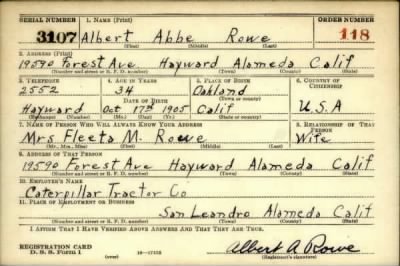 SERIAL NUMBER 1. NAME (Print) ORDER NUMBER
3107 Albert Abbe Rowe 118
(First) (Middle) (Last)
2. ADDRESS (Print)
19590 Forest Ave Hayward Alameda Calif
(Number and street or R. F. D. number) (Town) (County) (State)
3. TELEPHONE 4. AGE IN YEARS 5. PLACE OF BIRTH 6. COUNTRY OF CITIZENSHIP
2552 34 Oakland
DATE OF BIRTH (Town or county)
Hayward Oct 17th 1905 Calif U.S.A
(Exchange) (Mo.) (Day) (Yr.) (State or country)
7. NAME OF PERSON WHO WILL ALWAYS KNOW YOUR ADDRESS 8. RELATIONSHIP OF THAT PERSON
Mrs Fleeta M. Rowe Wife
(Mr., Mrs., Miss) (First) (Middle) (Last)
9. ADDRESS OF THAT PERSON
19590 Forest Ave Hayward Alameda Calif
(Number and street or R. F. D. number) (Town) (County) (State)
10. EMPLOYER'S NAME
Caterpillar Tractor Co
11. PLACE OF EMPLOYMENT OR BUSINESS
San Leandro Alameda Calif
(Number and street or R. F. D. number) (Town) (County) (State)
I AFFIRM THAT I HAVE VERIFIED ABOVE ANSWERS AND THAT THEY ARE TRUE.
REGISTRATION CARD
D. S. S. Form 1 (over) Albert A Rowe
(Registrant's signature)